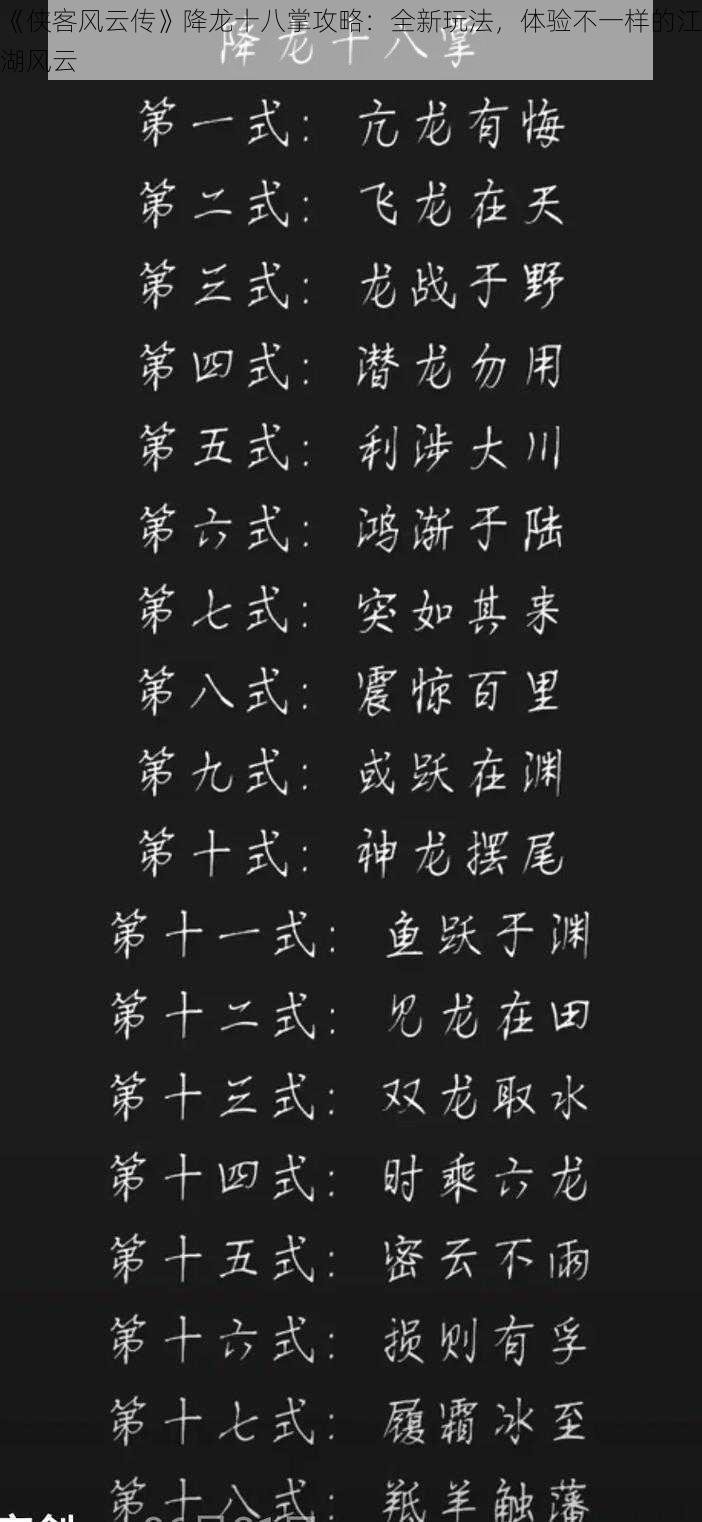 《侠客风云传》降龙十八掌攻略：全新玩法，体验不一样的江
湖风云
降龙十八掌
第一式：亢龙有悔
第二式：飞龙在天
第三式：龙战于野
第四式：潜龙勿用
第五式：利涉大川
第六式：鸿渐于陆
第七式：突如其来
第八式：震惊百里
第九式：或跃在渊
第十式：神龙摆尾
第十一式：鱼跃于渊
第十二式：见龙在田
第十三式：双龙取水
第十四式：时乘六龙
第十五式：密云不雨
第十六式：损则有孚
第十七式：履霜冰至
第十八式：羝羊触藩